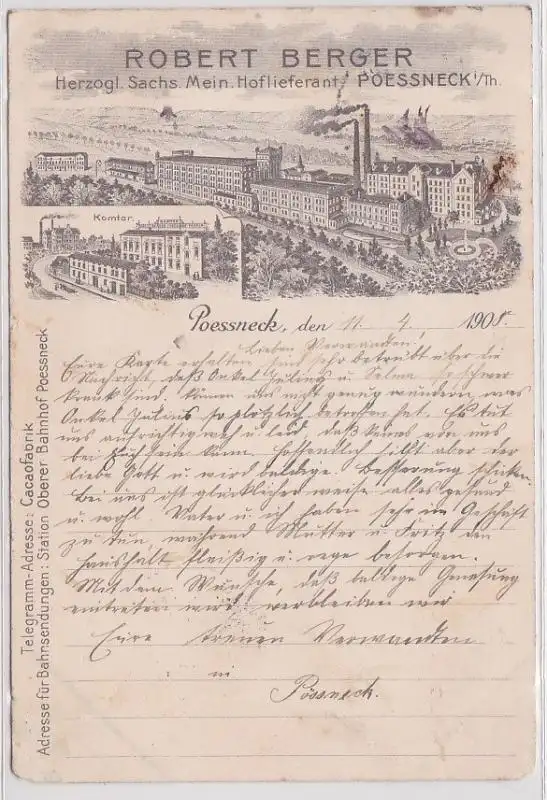 ROBERT BERGER
Herzogl. Sachs. Mein. Hoflieferant, POESSNECK i/Th.
Komtor.
Poessneck, den 11. 4. 1908.
Lieben Verwandten!
Eure Karte erhalten sind sehr betrübt über die
Nachricht, daß Onkel Julius u. Selma so schwer
krank sind. Können uns nicht genug wundern, was
Onkel Julius so plötzlich betroffen hat. Es tut
uns aufrichtig weh u. leid, daß keins von uns
bei Euch sein kann. Hoffendlich hilft aber der
liebe Gott u. wird baldige Besserung schicken.
Bei uns ist glücklicher weise alles gesund
u. wohl. Vater u. ich haben sehr im Geschäft
zu tun, während Mutter u. Fritz den
Haushalt fleißig u. rege besorgen.
Mit dem Wunsche, daß baldige Genesung
eintreten wird verbleiben wir
Eure treuen Verwandten
in
Pössneck.
Telegramm-Adresse: Cacaofabrik
Adresse für Bahnsendungen: Station Oberer Bahnhof Poessneck